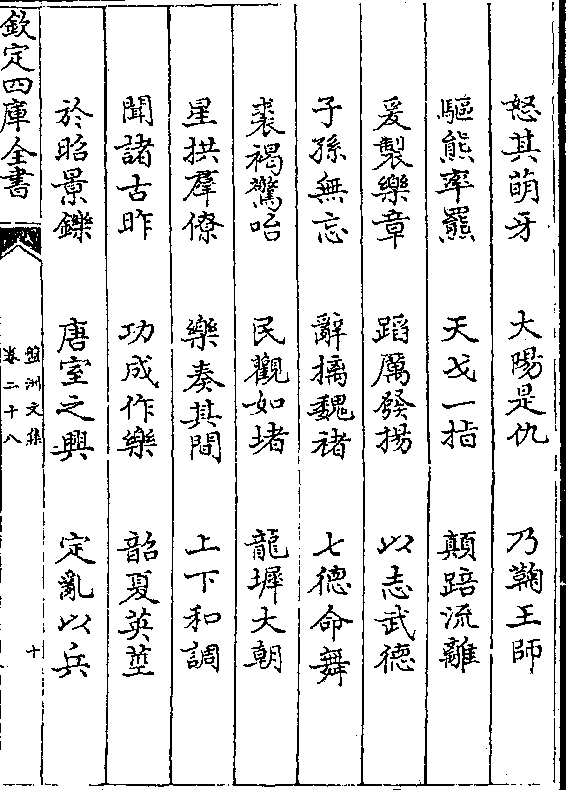 怒其萌牙　大陽是仇　乃鞠王師
驅熊率羆　天戈一指　顛踣流離
爰製樂章　蹈厲發揚　以志武德
子孫無忘　辭摛魏褚　七德命舞
裘褐驚咍　民觀如堵　龍墀大朝
星拱羣僚　樂奏其間　上下和調
聞諸古昨　功成作樂　韶夏英莖
於昭景鑠　唐室之興　定亂以兵
欽定四庫全書
盤洲文集
卷二十八
十